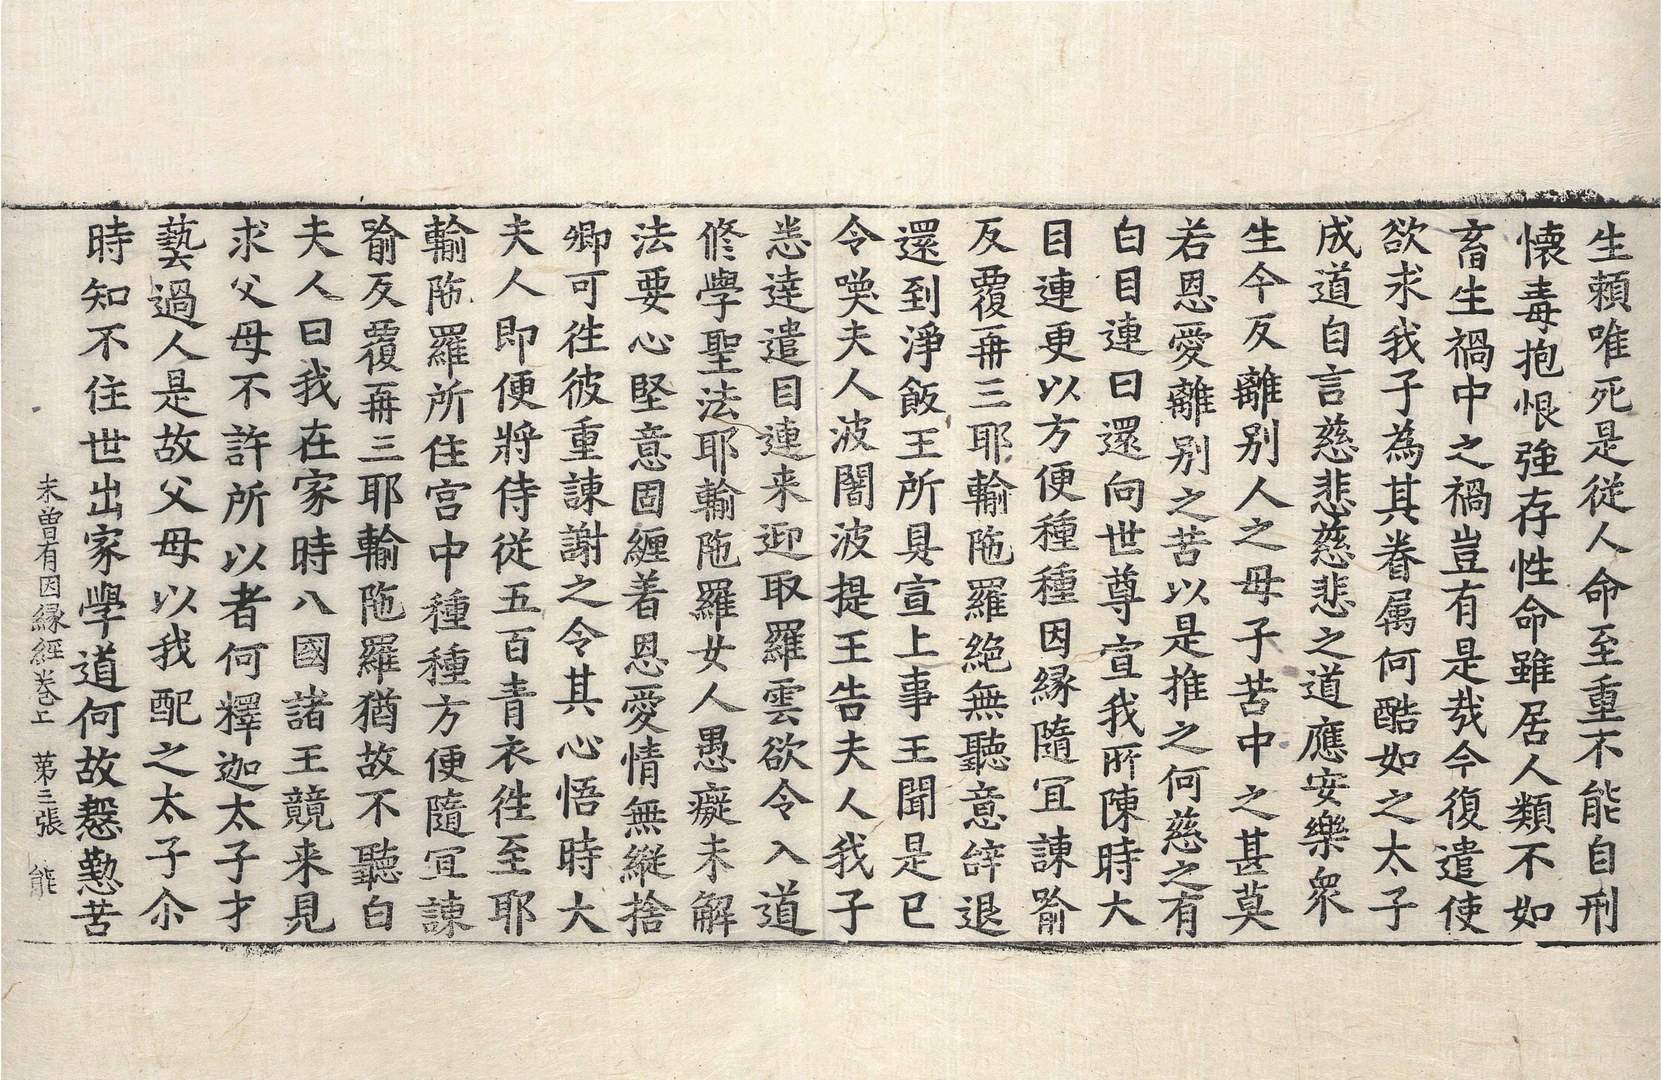 生賴唯死是從人命至重不能自刑
懷毒抱恨強存性命雖居人類不如
畜生禍中之禍豈有是哉今復遣使
欲求我子為其眷属何酷如之太子
成道自言慈悲慈悲之道應安樂衆
生今反離别人之母子苦中之甚莫
若恩愛離别之苦以是推之何慈之有
白目連曰還向世尊宣我所陳時大
目連更以方便種種因縁隨宜諫喻
反覆再三耶輸陁羅絕無聽意辝退
還到淨飯王所具宣上事王聞是已
令喚夫人波闍波提王告夫人我子
悉達遣目連来迎取羅雲欲令入道
修學聖法耶輸陁羅女人愚癡未解
法要心堅意固纏着恩愛情無縱捨
卿可徃彼重諫謝之令其心悟時大
夫人即便將侍従五百青衣徃至耶
輸陁羅所住宮中種種方便隨宜諫
喻反覆再三耶輸陁羅猶故不聽白
夫人曰我在家時八國諸王競来見
求父母不許所以者何釋迦太子才
藝過人是故父母以我配之太子尒
時知不住世出家學道何故慇懃苦
未曽有因縁經卷上　第三張　能